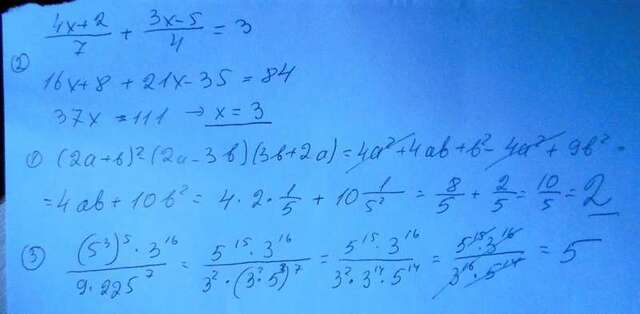 ② (4x+2)/7 + (3x-5)/4 = 3
16x+8 + 21x-35 = 84
37x = 111 → x = 3
① (2a+b)²-(2a-3b)(3b+2a) = 4a²+4ab+b²-4a²+9b² =
= 4ab+10b² = 4·2·1/5 + 10 1/5² = 8/5 + 2/5 = 10/5 = 2
③ ((5³)⁵·3¹⁶)/(9·225⁷) = (5¹⁵·3¹⁶)/(3²·(3²·5²)⁷) = (5¹⁵·3¹⁶)/(3²·3¹⁴·5¹⁴) = (5¹⁵·3¹⁶)/(3¹⁶·5¹⁴) = 5